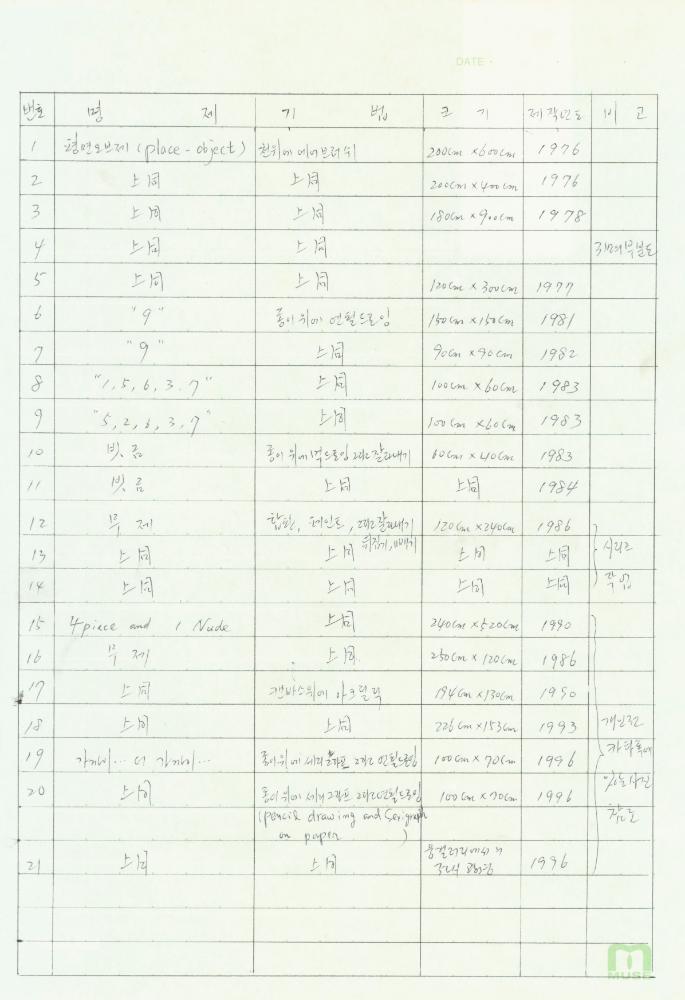 DATE · · ·
번호 명 제 기 법 크 기 제작년도 비 고
1 형면오브제 (place - object) 천위에 에어브러쉬 200cm ×600cm 1976
2 上同 上同 200cm ×400cm 1976
3 上同 上同 180cm ×900cm 1978
4 上同 上同
5 上同 上同 120cm × 300cm 1977
6 "9" 종이 위에 연필드로잉 150cm ×150cm 1981
7 "9" 上同 90cm ×90cm 1982
8 "1, 5, 6, 3. 7" 上同 100cm × 60cm 1983
9 "5, 2, 6, 3, 7" 上同 100cm ×60cm 1983
10 빗, 금 종이 위에 먹드로잉 그리고 잘라내기 60cm × 40cm 1983
11 빗, 금 上同 上同 1984
12 무 제 합판, 페인트, 그리고 잘라내기 120cm ×240cm 1986
뒤집기, 빼기
13 上同 上同 上同 上同 시리즈
14 上同 上同 上同 上同 작업
15 4 piece and 1 Nude 上同 240cm ×520cm 1990
16 무 제 上同 250cm × 120cm 1986
17 上同 캔바스위에 아크릴릭 194cm ×130cm 1990
18 上同 上同 226cm ×153cm 1993 개인전
19 가까이... 더 가까이... 종이 위에 세리그라프 그리고 연필드로잉 100cm × 70cm 1996 카타록에
20 上同 종이 위에 세리그라프 그리고 연필드로잉 100cm × 70cm 1996 있는 사진
(pencil drawing and Serigraph 참조
on paper )
21 上同 上同 1996
MUSE